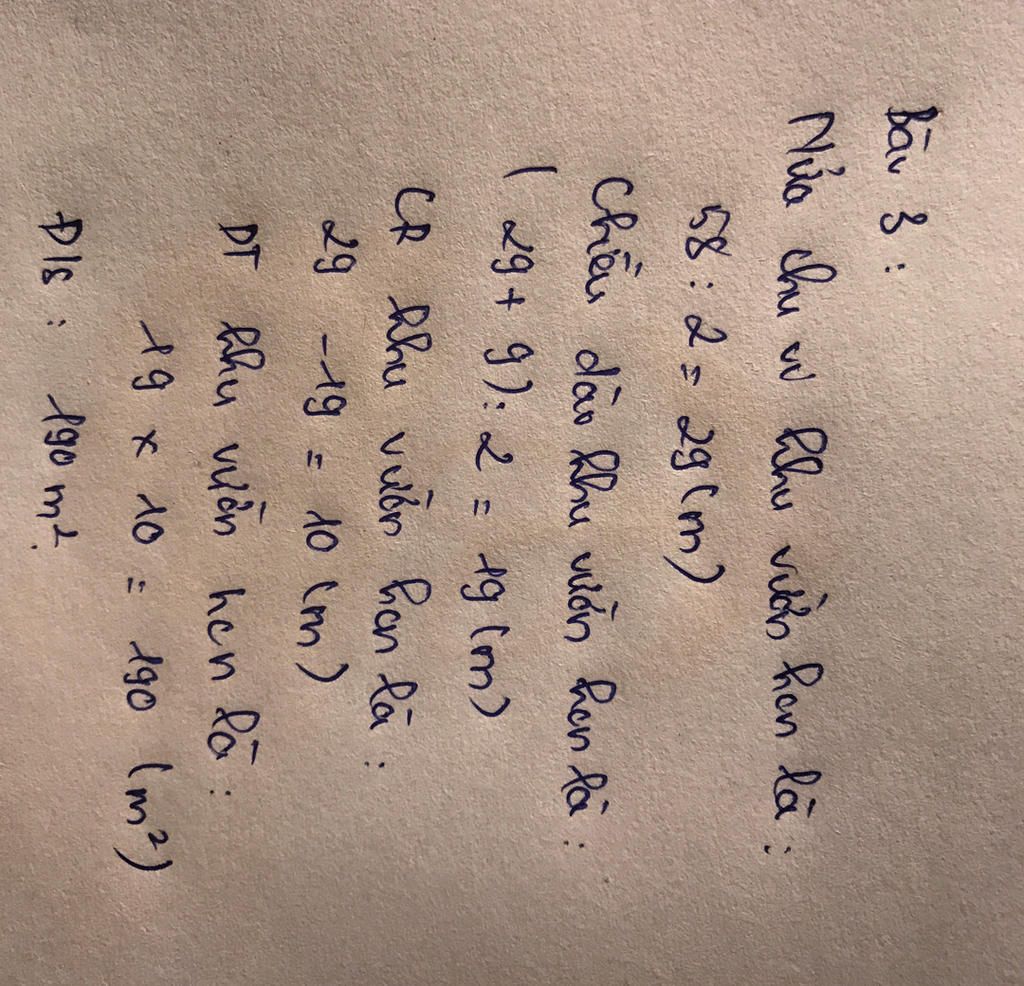 Bài 3 :
Nửa chu vi khu vườn hcn là :
58 : 2 = 29 (m)
Chiều dài khu vườn hcn là :
( 29 + 9 ) : 2 = 19 (m)
CR khu vườn hcn là :
29 - 19 = 10 (m)
DT khu vườn hcn là :
19 x 10 = 190 (m²)
Đ/s : 190 m².